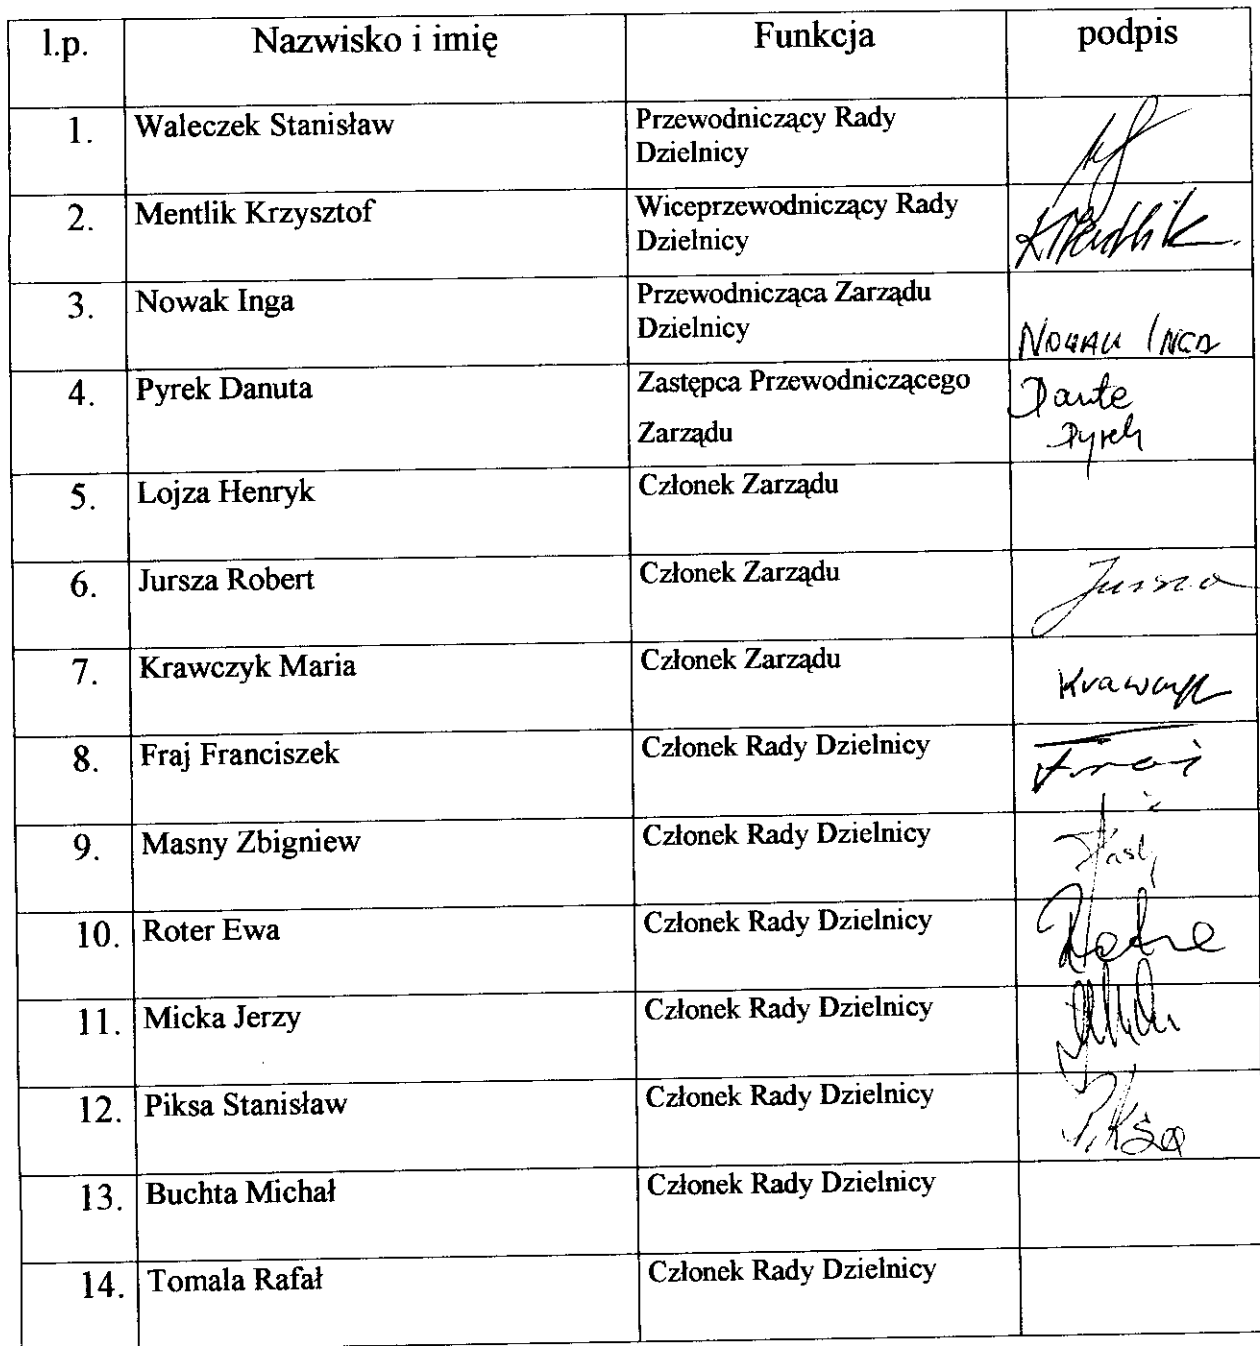 l.p. Nazwisko i imię Funkcja podpis
1. Waleczek Stanisław Przewodniczący Rady
Dzielnicy
2. Mentlik Krzysztof Wiceprzewodniczący Rady
Dzielnicy KMentlik
3. Nowak Inga Przewodnicząca Zarządu
Dzielnicy NOWAK INGA
4. Pyrek Danuta Zastępca Przewodniczącego
Zarządu Pyrek
5. Lojza Henryk Członek Zarządu
6. Jursza Robert Członek Zarządu Jursza
7. Krawczyk Maria Członek Zarządu Krawczyk
8. Fraj Franciszek Członek Rady Dzielnicy Fraj
9. Masny Zbigniew Członek Rady Dzielnicy
10. Roter Ewa Członek Rady Dzielnicy
11. Micka Jerzy Członek Rady Dzielnicy
12. Piksa Stanisław Członek Rady Dzielnicy Piksa
13. Buchta Michał Członek Rady Dzielnicy
14. Tomala Rafał Członek Rady Dzielnicy